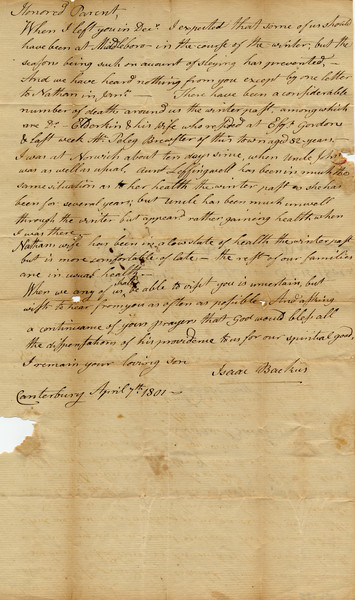 Honored Parent,
When I left you in Decr. I expected that some of us should
have been at Middleboro in the course of the winter, but the
seasons being such on account of sleying has prevented —
And we have heard nothing from you except by one letter
to Nathan in — There have been a considerable
number of deaths around us the winter past, among which
are Elderkin & his wife who resided at Gordons
& last week Mr. Peleg Brewster of this town aged 82 years.
I was at Norwich about ten days since, when Uncle John
was as well as usual, Aunt Leffingwell has been in much the
same situation as to her health the winter past as she has
been for several years; but Uncle has been much unwell
through the winter but appear'd rather gaining health when
I was there;
Nathans wife has been in a low state of health the winter past
but is more comfortable of late — the rest of our families
are in usual health —
When we any of us shall be able to visit you is uncertain, but
wish to hear from you as often as possible, And asking
a continuance of your prayers that God would bless all
the dispensations of his providence to us for our spiritual good,
I remain your loving son
Isaac Backus
Canterbury April 7th. 1801 —